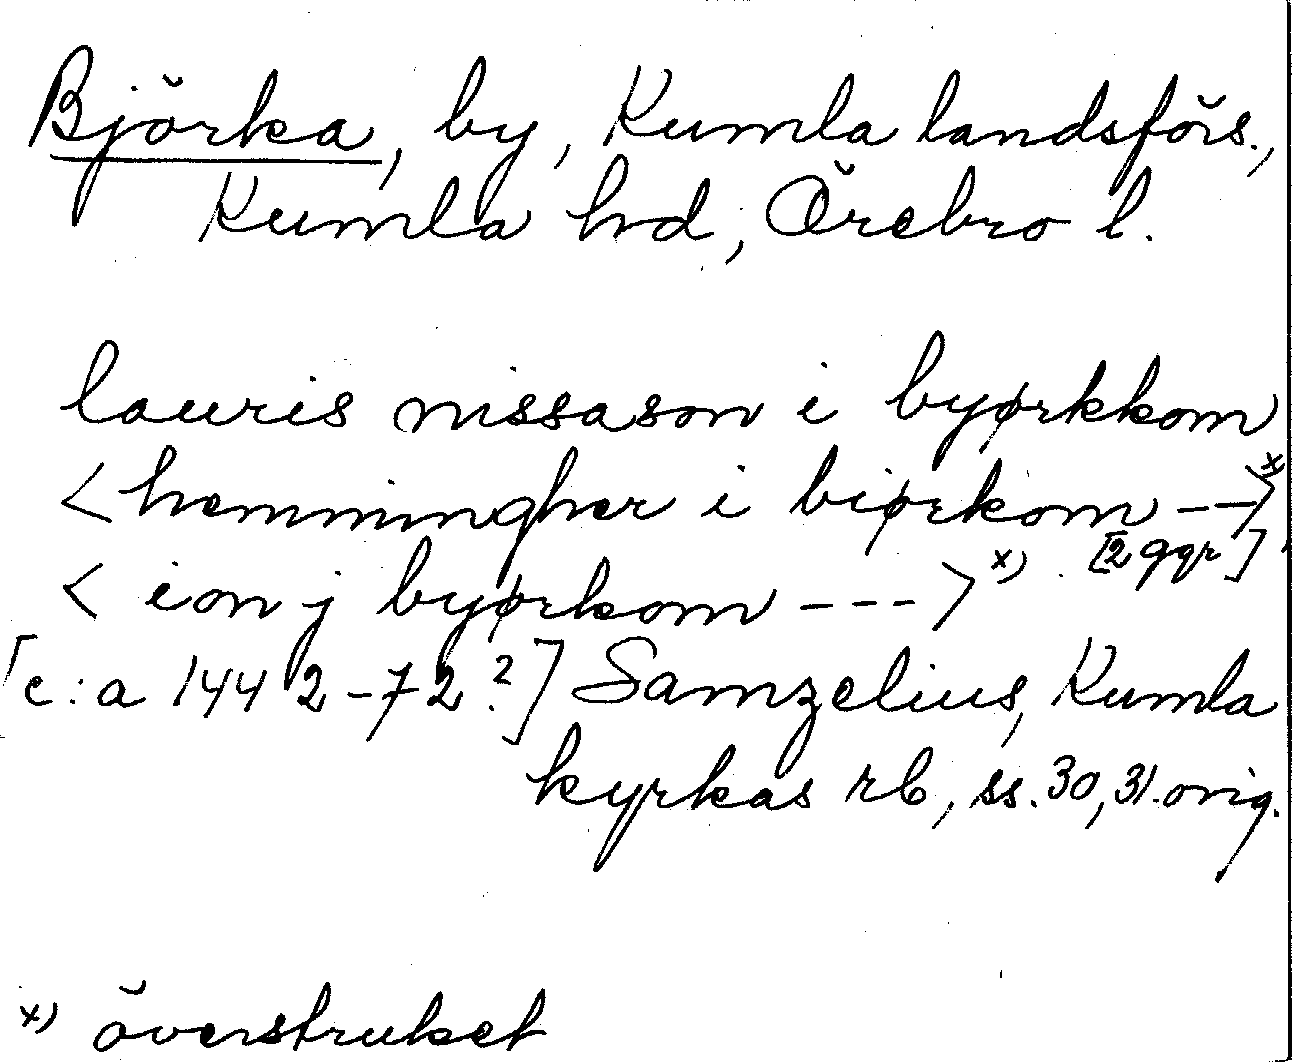 Björka, by, Kumla landsförs.,
Kumla hd, Örebro l.
lauris nissason i byørkkom
<hemmingher i biørkom --->x)
[2 ggr]
< ion j byørkom --->x)
[c:a 1442-72?] Samzelius, Kumla
kyrkas rb, ss. 30, 31. orig.
x) överstruket